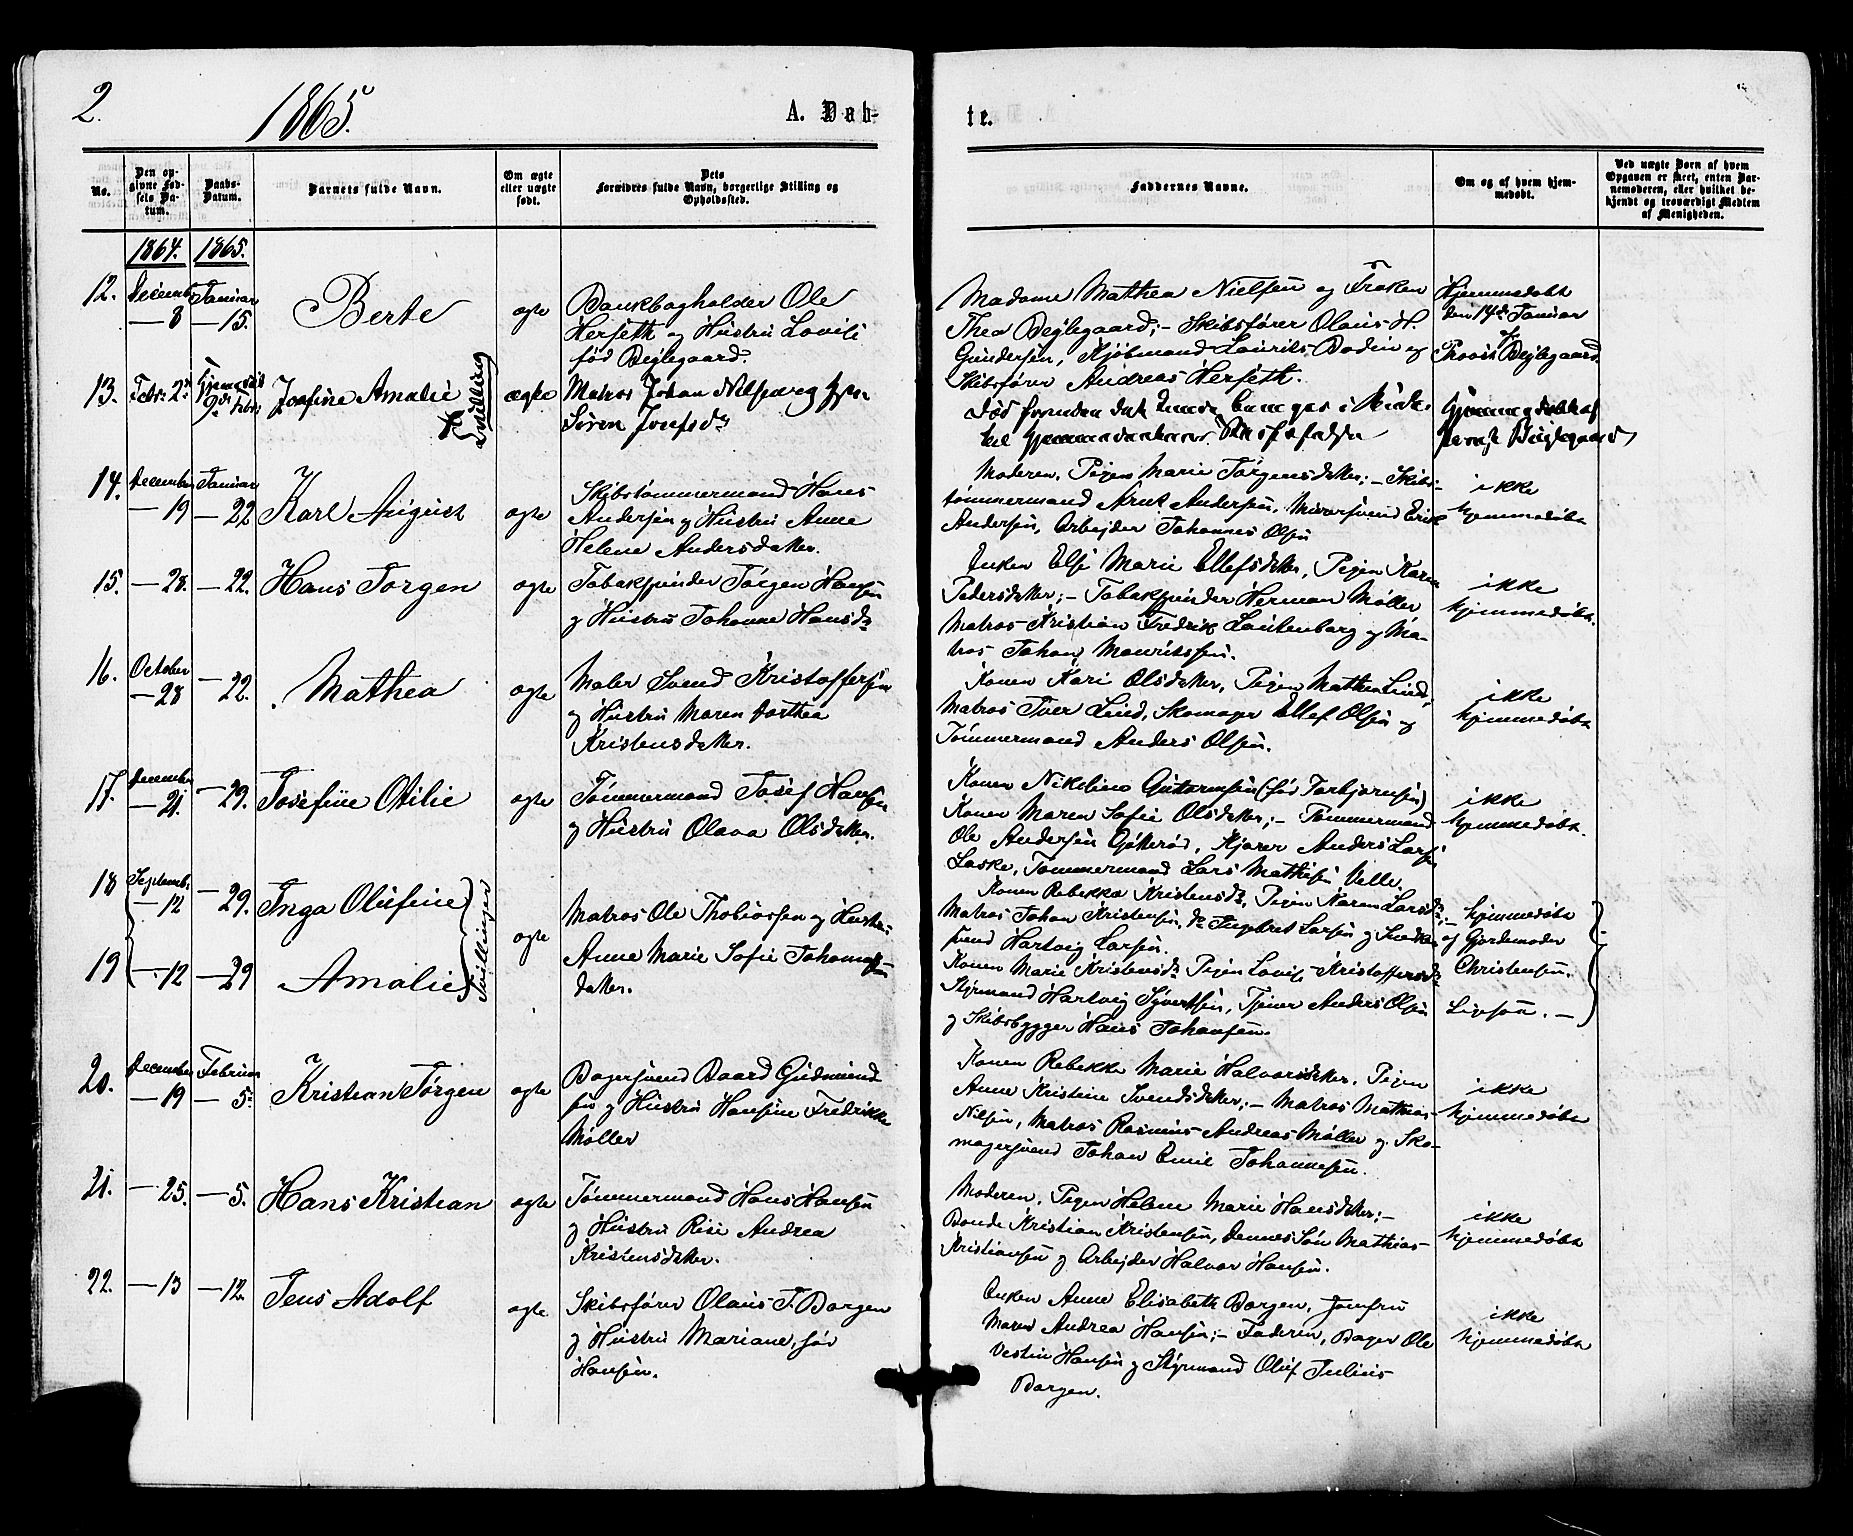 2.
1865.
A. Døb-
te.
No.
Den op-
givne Fød-
sels Da-
tum.
Daabs-
Datum.
Barnets fulde Navn.
Om ægte
eller uægte
født.
Dets
Forældres fulde Navn, borgerlige Stilling og
Opholdssted.
Faddernes Navne.
Om og af hvem hjem-
medøbt.
Ved uægte Børn af hvem
Opgaven er skeet, enten Bar-
nemoderen, eller hvilket be-
kjendt og troværdigt Medlem
af Menigheden.
1864. 1865.
12. December
— 8
Januar
— 15.
Berte
ægte
Bankbogholder Ole
Herseth og Hustru Lovise
fød Bejlegaard.
Madame Mathea Nielsen og Frøken
Thea Bejlegaard; - Skibsfører Olaus H.
Gundersen, Kjøbmand Laurits Bodin og
Skibsfører Andreas Herseth.
Hjemmedøbt
den 14de Januar
af
Provst Bejlegaard.
13. Febr: 2den
Hjemmedøbt
9de Febr:
Josefine Amalie
Tvilling
ægte
Matros Johan Nilsen og
Søren Josefsdr
Død forinden
Hjemmedøbt af
Provst Bejlegaard
14. December
— 19
Januar
— 22
Karl August
ægte
Skibstømmermand Hans
Andersen og Hustru Anne
Helene Andersdatter.
Moderen, Pigen Marie Jørgensdatter; - Skibs-
tømmermand Arnt Andersen, Murersvend Erik
Andersen, Arbejder Johannes Olsen
ikke
hjemmedøbt
15. — 28. — 22. Hans Jørgen
ægte
Tobakspinder Jørgen Hansen
og Hustru Johanne Hansdr
Enken Else Marie Ellefsdatter, Pigen Karen
Pedersdatter; - Tobakspinder Herman Møller
Matros Kristian Fredrik Lautenborg og Ma-
tros Johan Mauritssen.
ikke
hjemmedøbt.
16. October
— 28
— 22.
Mathea
ægte
Maler Svend Kristoffersen
og Hustru Maren Dorthea
Kristensdatter.
Konen Kari Olsdatter, Pigen Mathea Lind,
Matros Iver Lind, Skomager Ellef Olsen og
Tømmermand Anders Olsen.
ikke
hjemmedøbt
17. December
— 21.
— 29.
Josefine Otilie
ægte
Tømmermand Josef Hansen
og Hustru Olava Olsdatter.
Konen Nikoline Guttormsen (fød Torbjørnsen)
Konen Maren Sofie Olsdatter; - Tømmermand
Ole Andersen Gjøkerød, Kjører Anders Larsen
Laske, Tømmermand Lars Mathisen Velle.
ikke
hjemmedøbt.
18 September
— 12
— 29.
Inga Olufine
Tvillinger
ægte
Matros Ole Thobiassen og Hustru
Anne Marie Sofie Johannes-
datter.
Konen Rebekka Kristensdr, Pigen Karen Larsdr; -
Matros Johan Kristensen, do Ingebret Larsen og Snedker-
svend Hartvig Larsen.
hjemmedøbt
af Gjordemoder
Christensen.
19 — 12 — 29 Amalie
Konen Marie Kristensdr Pigen Lovise Kristoffersdr
Styrmand Hartvig Syvertsen, Tjener Anders Olsen
og Skibsbygger Hans Johansen.
Ligesaa. —
20. December
— 19
Februar
— 5.
Kristian Jørgen
ægte
Bagersvend Baard Gudmund-
sen og Hustru Hansine Fredrikke
Møller
Konen Rebekka Marie Halvorsdatter, Pigen
Anne Kristine Svendsdatter; - Matros Mathias
Nilsen, Matros Rasmus Andreas Møller og Sko-
magersvend Johan Emil Johannesen.
ikke
hjemmedøbt
21. — 25. — 5. Hans Kristian
ægte
Tømmermand Hans Hansen
og Hustru Risi Andrea
Kristensdatter.
Moderen, Pigen Helene Marie Hansdatter; -
Bonde Kristian Kristensen, dennes Søn Mathias
Kristiansen og Arbejder Halvor Hansen.
ikke
hjemmedøbt
22. — 13 — 12. Jens Adolf
ægte
Skibsfører Olaus T. Borgen
og Hustru Mariane, fød
Hansen.
Enken Anne Elisabeth Borgen, Jomfru
Maren Andrea Hansen; - Faderen, Bager Ole
Vestin Hansen og Styrmand Oluf Julius
Borgen.
ikke
hjemmedøbt